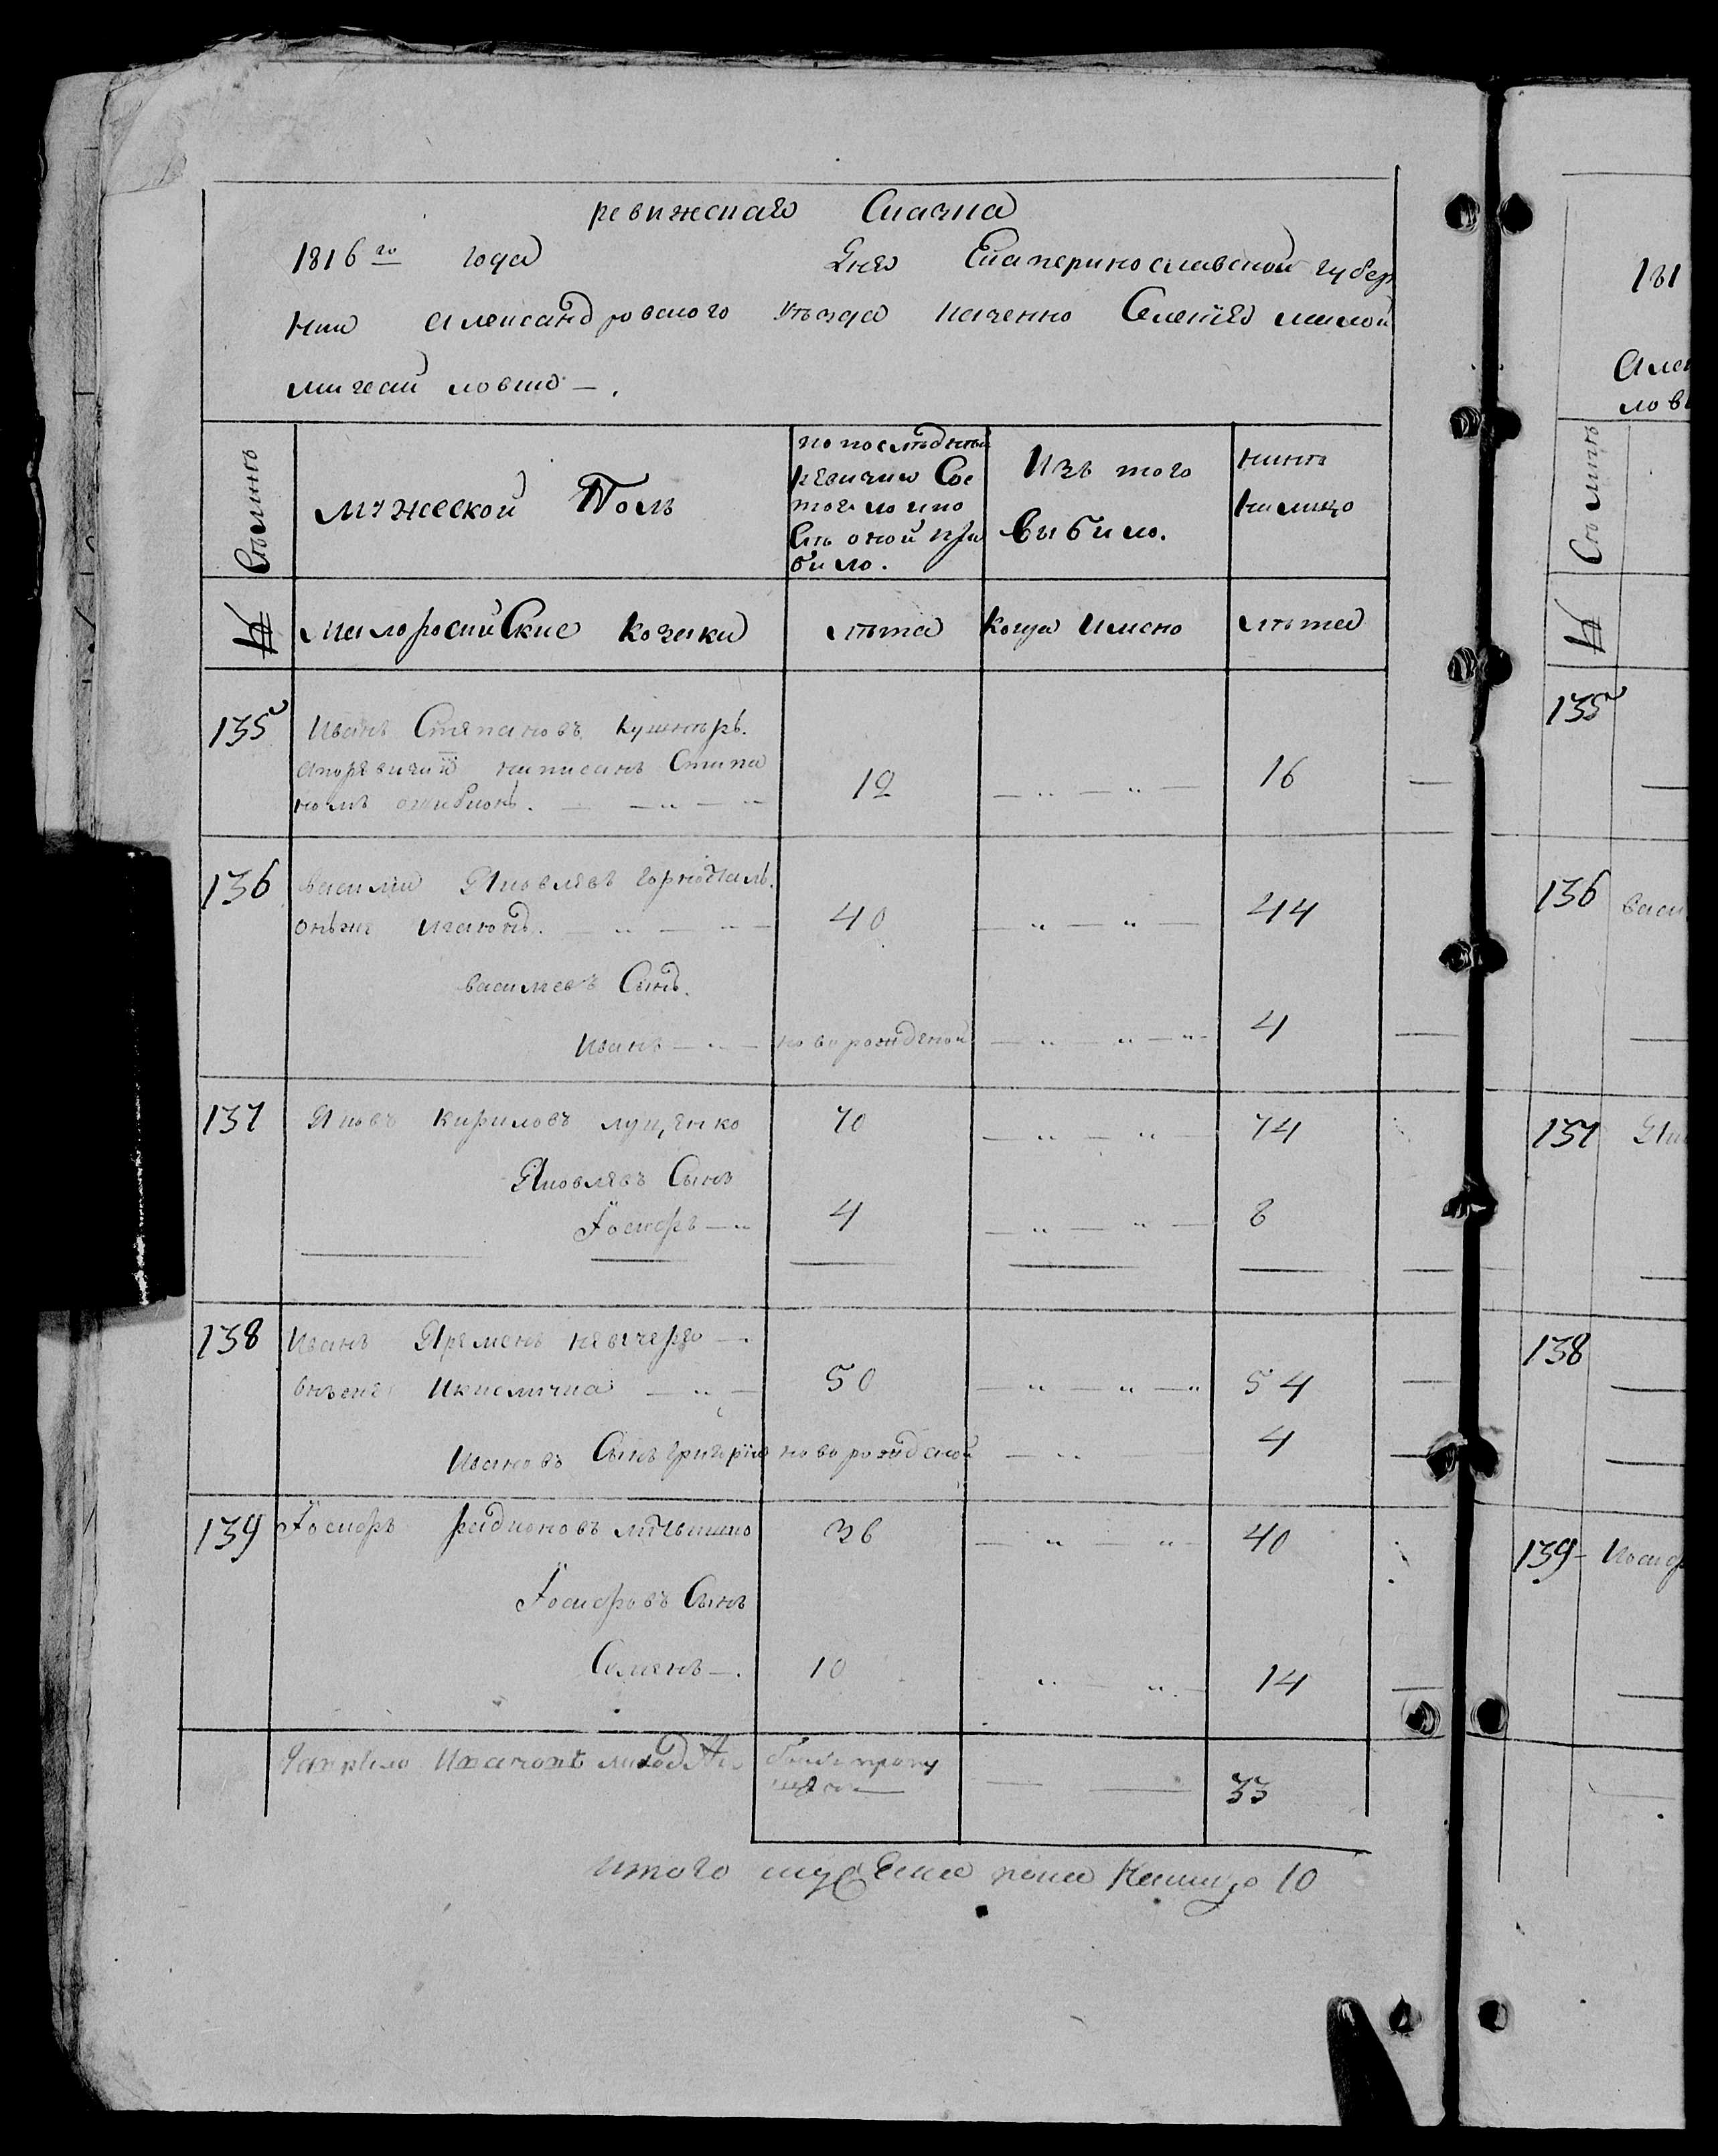 ревижская Сказка
1816го года Дня Екатеринославской губер
нии Александровского уезда казенно Селения малой
михайловки —.
Семьи
мужеской Полъ
по последней
ревизии Сос
тояло и по
сле оной при
было.
Изъ того
выбыло.
ныне
налицо
№
малоросийские козаки
лета
когда имено
лета
135
Иванъ Степановъ кушнѣръ.
а по ревизии написанъ Степа
номъ ошибкою. — — „ — „
12
— „ — „ —
16
136
василий Яковлевъ
онъже — „ — „ —
40
— „ — „ —
44
василевъ Сынъ.
Иванъ — „ —
новорожденой
— „ — „ — „
4
137
Яковъ Кириловъ луценко
70
— „ — „ —
74
Яковлевъ Сынъ
Iосифъ — „
4
— „ — „ —
8
138
Иванъ Яременъ —.
онъже — „ —
50
— „ — „ — „
54
Ивановъ Сынъ григорий
новорожденой
— „ —
4
139
Iосифъ радионовъ
36
— „ — „ —
40
Iосифовъ Сынъ
Семенъ —.
10
„ — „ —
14
Гаврило
былъ пропу
щенъ —
— —
33
итого мужеска пола налицо 10
181
Алек
лов
Семьи
№
135
136 Васи
137 Як
138
139 Иосиф